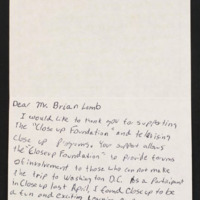 Dear Mr. Brian Lamb
I would like to thank you to supporting
the "Close up Foundation" and televising
close up Programs. Your support allows
the "Closeup Foundation" to provide forms
of involvement to those who can not make
the trip to Washington D.C. As a Participant
in Close up last April, I found Close up to be
a fun and exciting